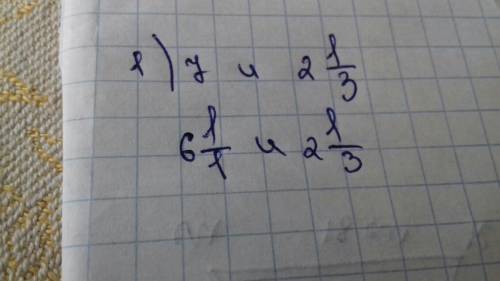 1) 7 и 2 1/3
6 1/1 и 2 1/3